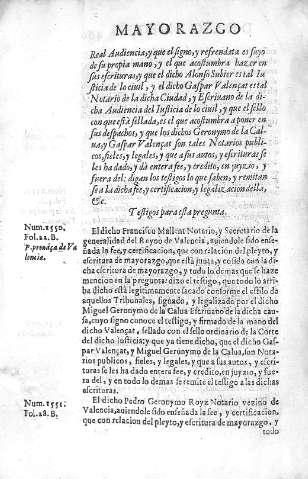 MAYORAZGO
Real Audiencia, y que el signo, y refrendata es suyo
de su propia mano, y el que acostumbra hazer en
sus escrituras, y que el dicho Alonso Subier es tal Iu
sticia de lo ciuil, y el dicho Gaspar Valençat es tal
Notario de la dicha Ciudad, y Escriuano de la di-
cha Audiencia del Iusticia de lo ciuil, y que el sello
con que està sellada, es el que acostumbra a poner en
sus despachos, y que los dichos Geronymo de la Ca-
lua, y Gaspar Valençat son tales Notarios publi-
cos, fieles, y legales, y que a sus autos, y escrituras se
les ha dado, y dà entera fee, y credito, en juyzio, y
fuera del: digan los testigos lo que saben, y remitan
se a la dicha fee, y certificacion, y legalizacion della,
&c.
Testigos para esta pregunta.
Num. 1550.
Fol. 22. B.
P. prouãça de Va
lencia.
El dicho Francisco Mallent Notario, y Secretario de la
generalidad del Reyno de Valencia, auiendole sido ense-
ñada la fee, y certificacion, que con relacion del pleyto, y
escritura de mayorazgo, que està justa, y cosida con la di-
cha escritura de mayorazgo, y todo lo demas que se haze
mencion en la pregunta: dixo el testigo, que todo lo arri-
ba dicho està legitimamente sacado conforme el estilo de
aquellos Tribunales, signado, y legalizado por el dicho
Miguel Geronymo de la Calua Escriuano de la dicha cau-
sa, cuyo signo conoce el testigo, y firmado de la mano del
dicho Valençat, sellado con el sello ordinario de la Corte
del dicho Iusticia: y que ya tiene dicho, que el dicho Gas
par Valençat, y Miguel Geronymo de la Calua, son Nota-
rios publicos, fieles, y legales, y que a sus autos, y escri-
turas se les ha dado entera fee, y credito, en juyzio, y fue-
ra del, y en todo lo demas se remite el testigo a las dichas
escrituras.
Num. 1551.
Fol. 28. B.
El dicho Pedro Geronymo Royz Notario vezino de
Valencia, auiendole sido enseñada la fee, y certificacion,
que con relacion del pleyto, y escritura de mayorazgo, y
todo